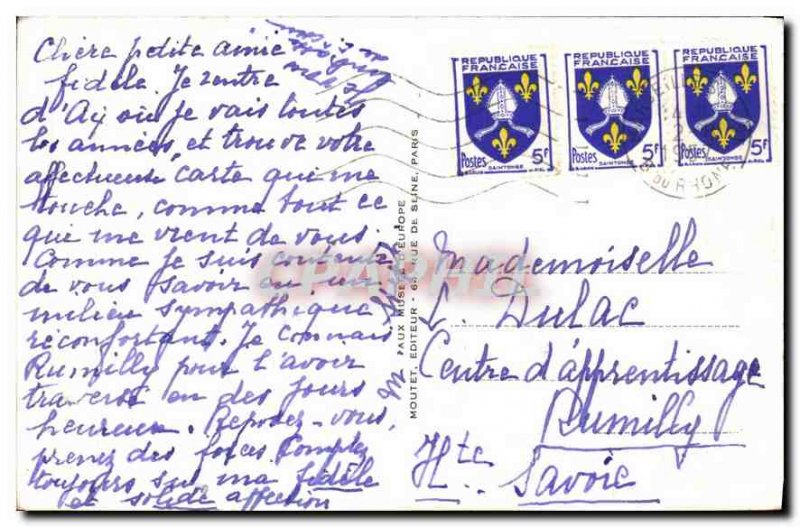 Chère petite amie
fidèle. Je rentre
d'Aÿ où je vais toutes
les années, et trouve votre
affectueuse carte que me
touche, comme tout ce
que me vient de vous.
Comme je suis contente
de vous savoir au un
milieu sympathique
réconfortant. Je connais
Rumilly pour l'avoir
traversé en des jours
heureux. Reposez-vous,
prenez des forces. Comptez
toujours sur ma fidèle
et solide affection
AUX MUSÉES D'EUROPE
MOUTET, EDITEUR - RUE DE SEINE, PARIS
REPUBLIQUE FRANÇAISE
Postes 5F
SAINTONGE
REPUBLIQUE FRANÇAISE
Postes 5F
SAINTONGE
REPUBLIQUE FRANÇAISE
Postes 5F
SAINTONGE
DU RHONE
Mademoiselle
L. Dulac
Centre d'apprentissage
Rumilly
Hte
Savoie
CPARAMA